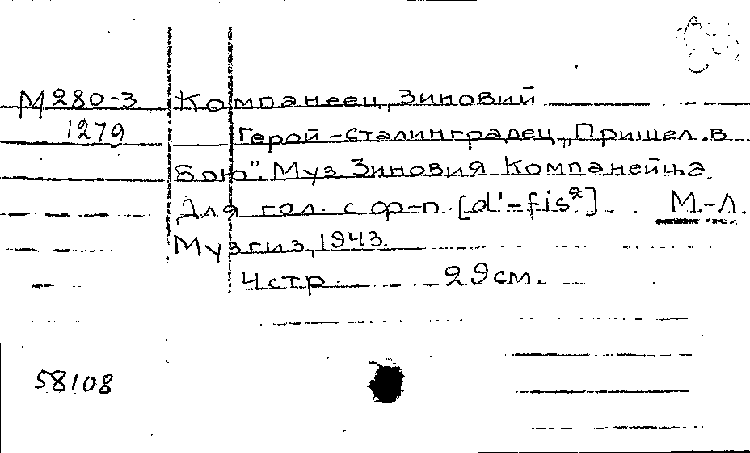 М280-3 Компанеец, Зиновий
1279 Герой-сталинградец, "Пришел в
бою". Муз Зиновия Компанейца.
Для гол. с ф-п. [d'-fis²] М.-Л.
Музгиз, 1943.
4 стр. 29 см.
58108